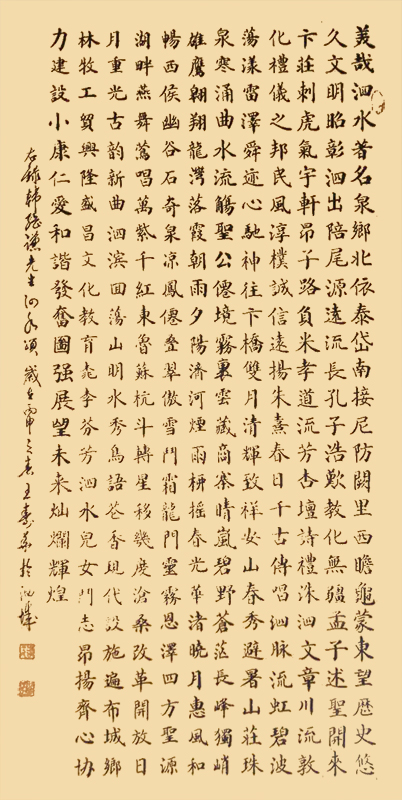 美哉泗水著名泉鄉北依泰岱南接尼防闕里西瞻龜蒙東望歷史悠
久文明昭彰泗出陪尾源遠流長孔子浩歎教化無疆孟子述聖開來
卞莊刺虎氣宇軒昂子路負米孝道流芳杏壇詩禮洙泗文章川流敦
化禮儀之邦民風淳樸誠信遠揚朱熹春日千古傳唱泗脉流虹碧波
蕩漾雷澤舜迹心馳神往卞橋雙月清輝致祥安山春秀避暑山莊珠
泉寒涌曲水流觴聖公僊境霧裏雲藏高寨晴嵐碧野蒼茫長峰獨峭
雄鷹翱翔龍灣落霞朝雨夕陽濟河煙雨梗搖春光華渚曉月惠風和
暢西侯幽谷石奇泉凉鳳僊疊翠傲雪鬥霜龍門靈霧恩澤四方聖源
湖畔燕舞鶯唱萬紫千紅東魯蘇杭斗轉星移幾度滄桑改革開放日
月重光古韵新曲泗滨回蕩山明水秀鳥語花香現代設施遍布城鄉
林牧工貿興隆盛昌文化教育桃李芬芳泗水兒女鬥志昂揚齊心協
力建設小康仁愛和諧發奮圖强展望未来灿爛輝煌
右錄韩繼谦先生泗水頌歲在申之春王壽 於泗城